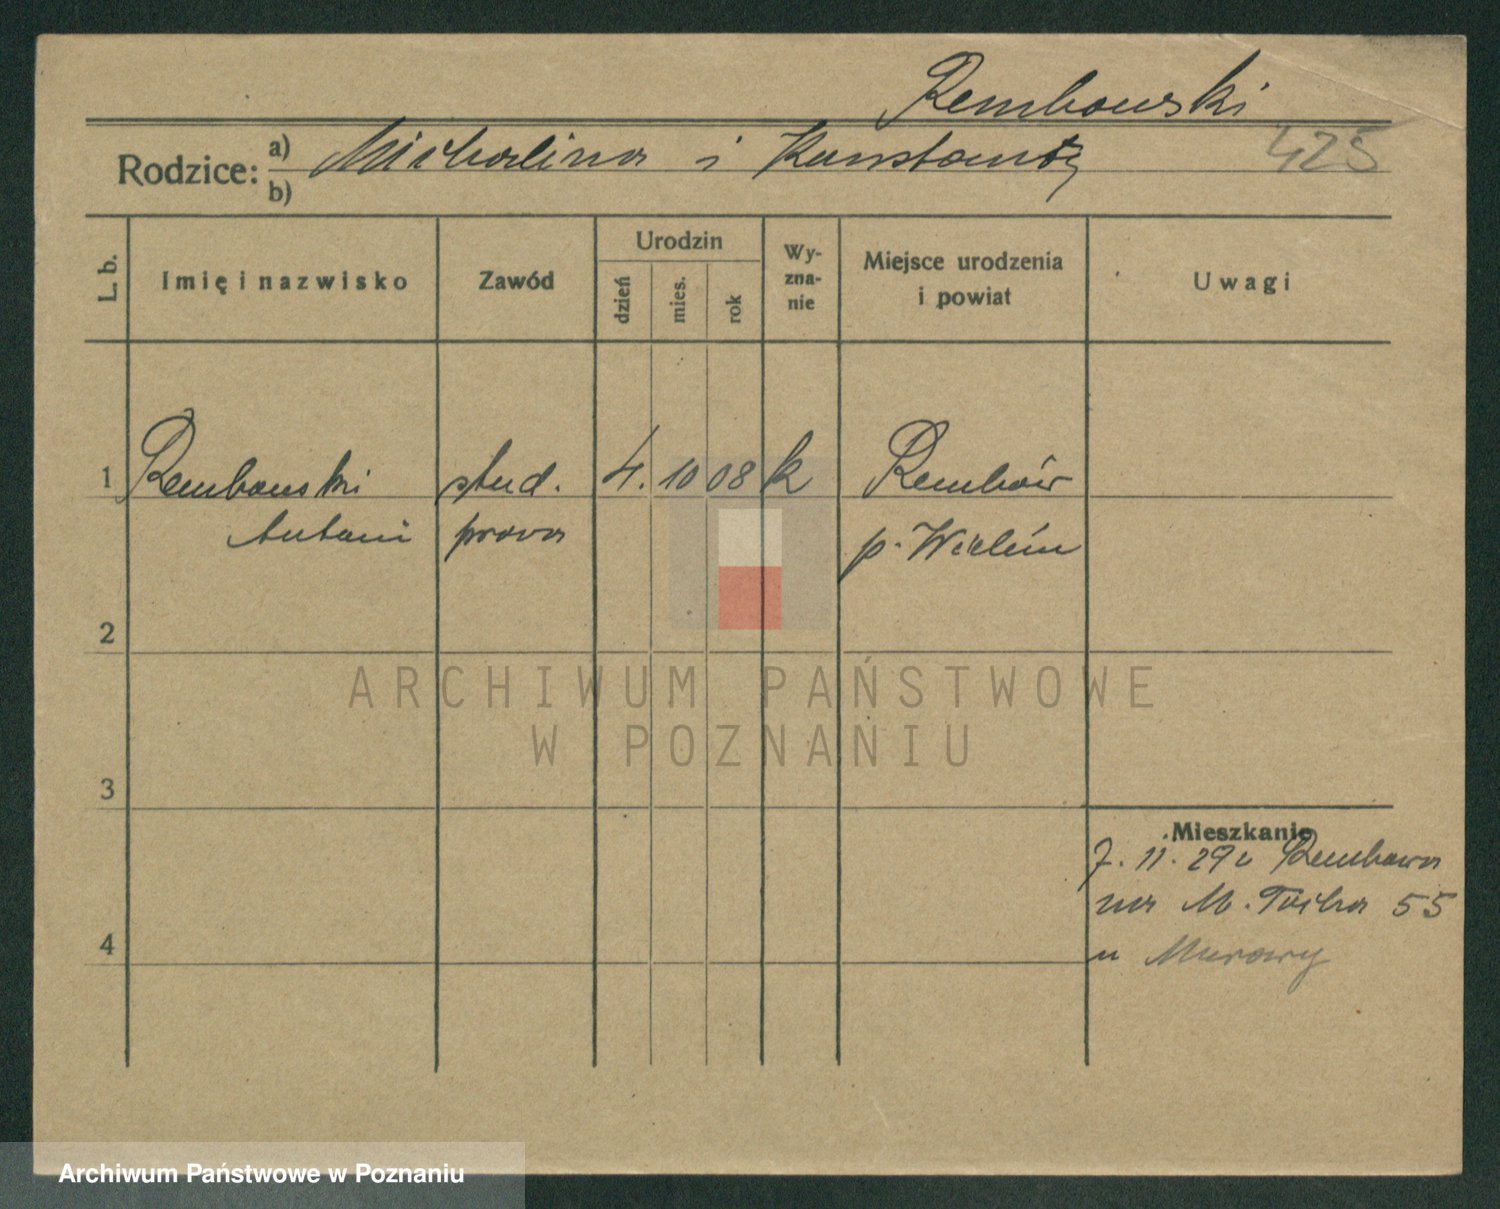 Rembowski
Rodzice: a) Michalina i Konstanty 425
b)
L. b. Imię i nazwisko Zawód Urodzin dzień mies. rok Wy-zna-nie Miejsce urodzenia i powiat Uwagi
1 Rembowski stud. 4. 10 08 k Rembów
Antoni prawa p. Wieluń
2
ARCHIWUM PAŃSTWOWE
W POZNANIU
3
Mieszkanie
7. 11. 29 z Rembowa
na M. Focha 55
4
u Murawy
Archiwum Państwowe w Poznaniu